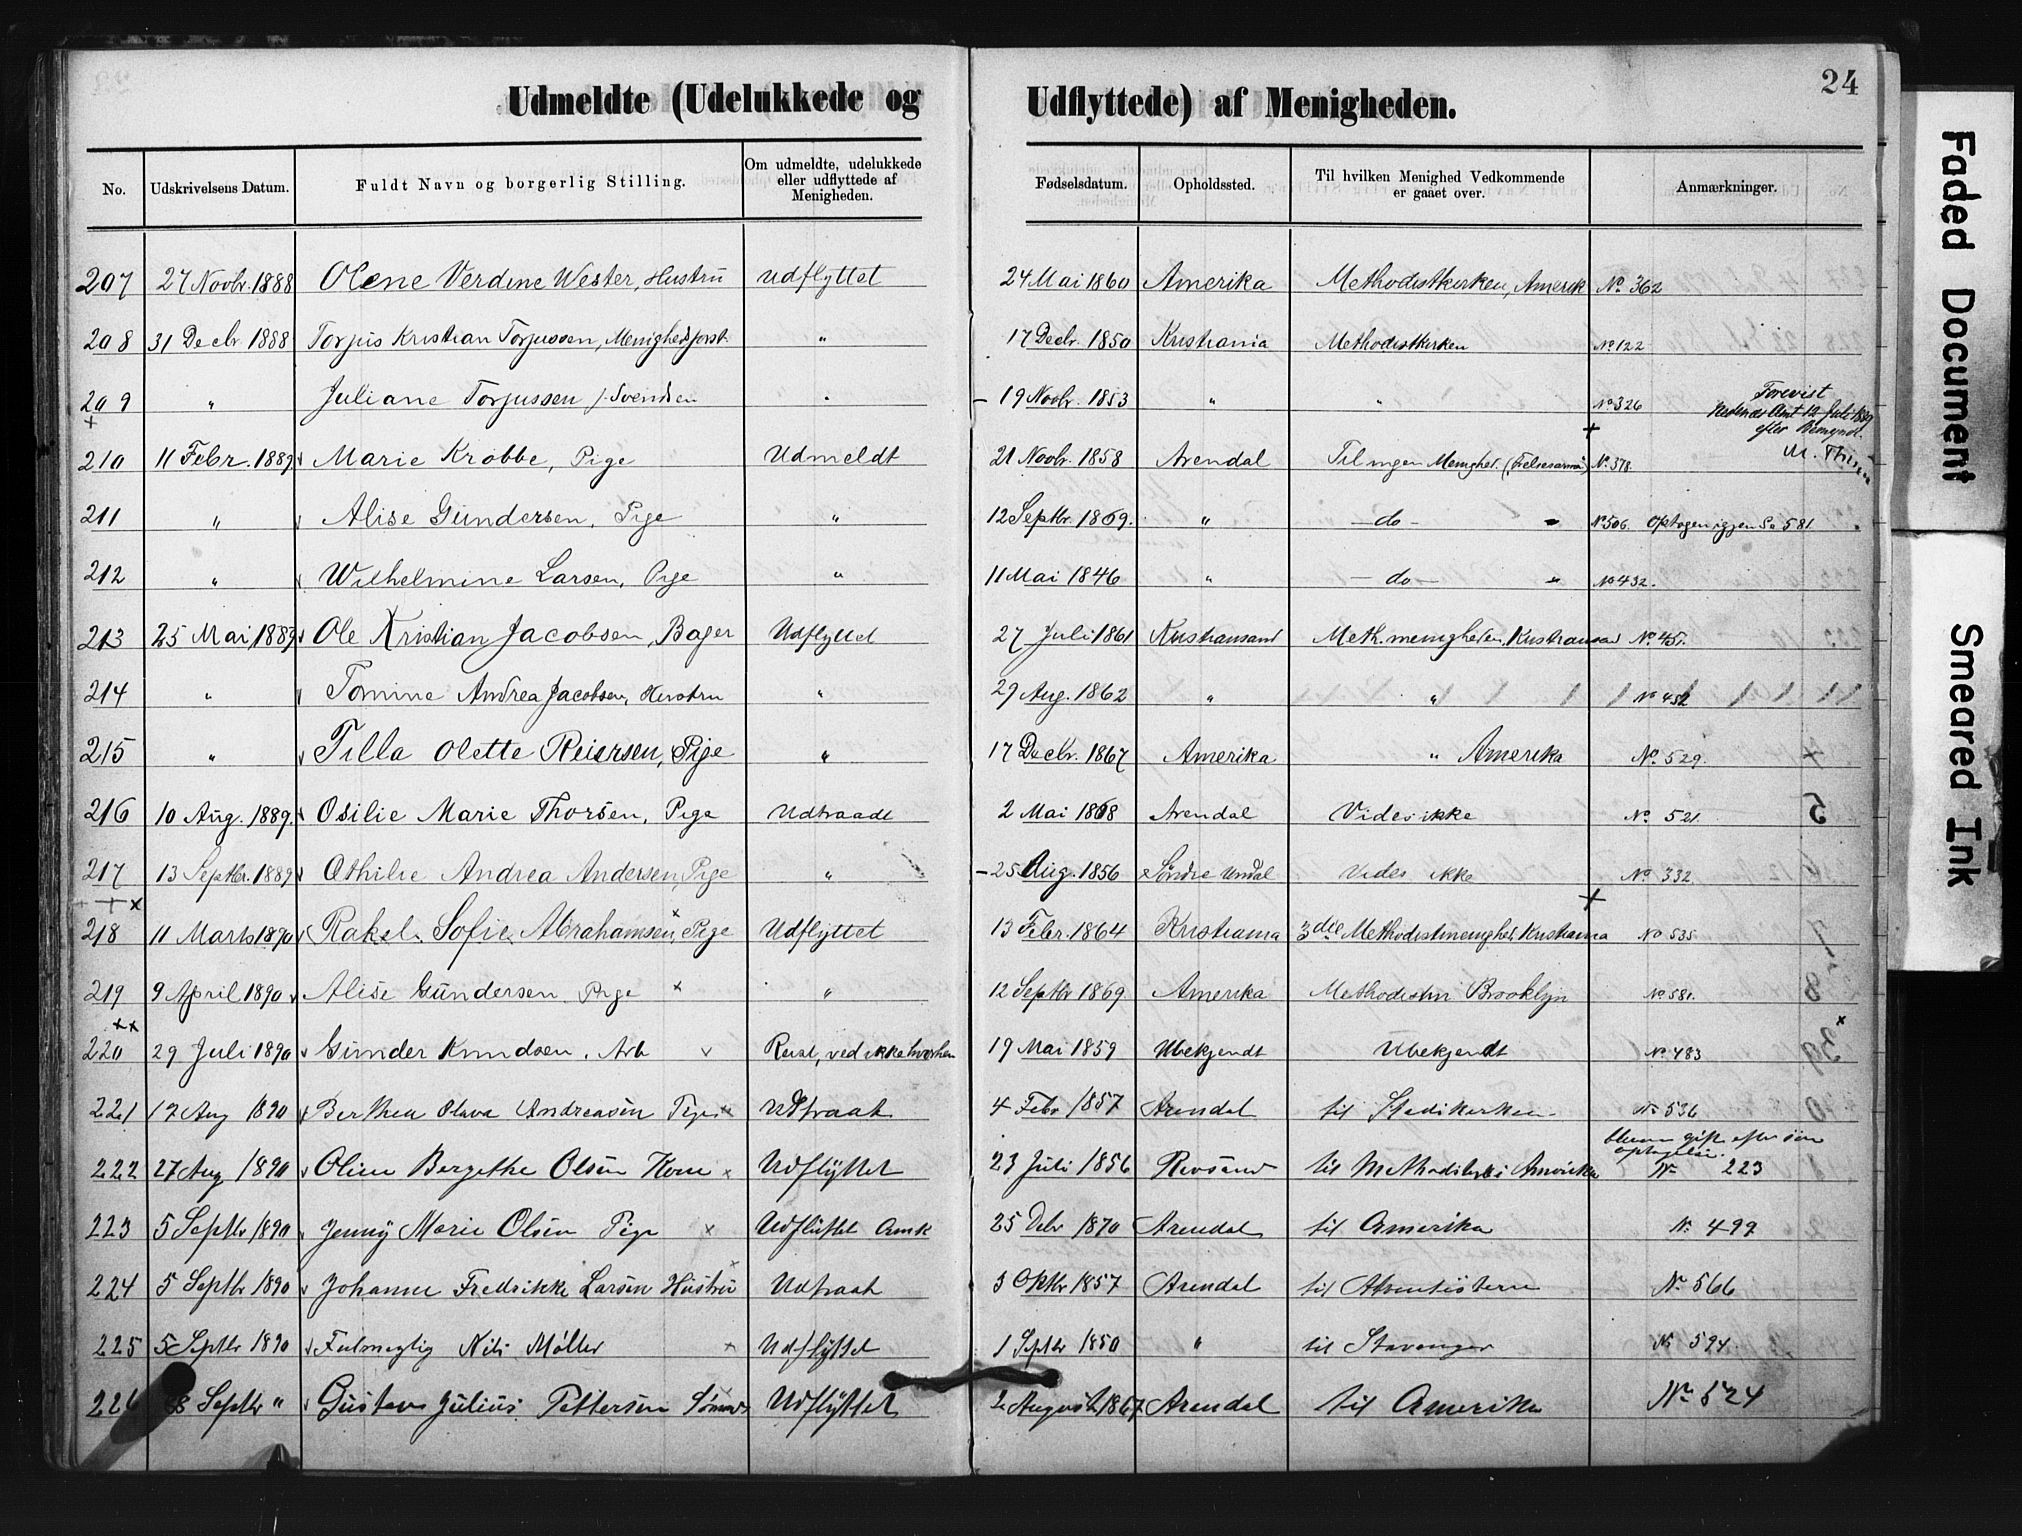 24
Udmeldte (Udelukkede og Udflyttede) af Menigheden.
No. Udskrivelsens Datum. Fuldt Navn og borgerlig Stilling. Om udmeldte, udelukkede eller udflyttede af Menigheden. Fødselsdatum. Opholdssted. Til hvilken Menighed Vedkommende er gaaet over. Anmærkninger.
207 27 Novbr. 1888 Olene Verdine Wester, Hustru Udflyttet 24 Mai 1860 Amerika Methodistkirken, Amerik No. 362
208 31 Decbr. 1888 Torjus Kristian Torjussen, Menighedsforst. " 17 Decbr. 1850 Kristiania Methodistkirken No. 122
209 " Juliane Torjussen f. Svendsen " 19 Novbr. 1853 " " No. 326 Forevist Nedenæs Amt 12 Juli 1889 efter Bemynd.
210 11 Febr. 1889 Marie Krobbe, Pige Udmeldt 21 Novbr. 1858 Arendal Til ingen Menighet. (Frelsesarmé) No. 378
211 " Alise Gundersen, Pige " 12 Septbr. 1869. " - do - " No 506. Optagen igjen Se 581.
212 " Wilhelmine Larsen, Pige " 11 Mai 1846 " - do - " No 432.
213 25 Mai 1889 Ole Kristian Jacobsen, Bager Udflyttet 27 Juli 1861 Kristiansand Meth. menigheden, Kristiansand No. 451.
214 " Tomine Andrea Jacobsen, Hustru " 29 Aug. 1862 " " No 452
215 " Tilla Olette Reiersen, Pige " 17 Decbr. 1867 Amerika " Amerika No. 529.
216 10 Aug. 1889. Osilie Marie Thorsen, Pige Udtraadt 2 Mai 1868 Arendal Vides ikke No. 521.
217 13 Septbr. 1889 Othilie Andrea Andersen, Pige " 25 Aug. 1856 Søndre Undal Vides ikke No. 332
218 11 Marts 1890 Rakel Sofie Abrahamsen, Pige Udflyttet 13 Febr. 1864 Kristiania 3die Methodistmenighed, Kristiania No 535
219 9 April 1890 Alise Gundersen Pige " 12 Septbr 1869 Amerika Methodistm Brooklyn No 581.
220 29 Juli 1890 Gunder Knudsen, Arb Reist, ved ikke hvorhen 19 Mai 1859 Ubekjendt Ubekjendt No. 483
221 17 Aug 1890 Berthea Olava Andreasen Pige Udtraat 4 Febr 1857 Arendal til Stadskirken No 536
222 27 Aug 1890 Oline Bergethe Olsen Kone Udflyttet 23 Juli 1856 Revsand til Methodistk i Amerika No 223
223 5 Septbr 1890 Jenny Marie Olsen Pige Udflyttet Amk 25 Debr 1870 Arendal til Amerika No. 499
224 5 Septbr 1890 Johanne Fredrikke Larsen Hustru Udtraat 3 Oktbr 1857 Arendal til Adventisterne No. 566
225 5 Septbr 1890 Fulmegtig Nils Møller Udflyttet 1 Septbr 1850 " til Stavanger No 594.
226 Septbr " Gustav Julius Pettersen Sømand Udflyttet 2 August 1867 Arendal til Amerika No 524
Faded Document
Smeared Ink